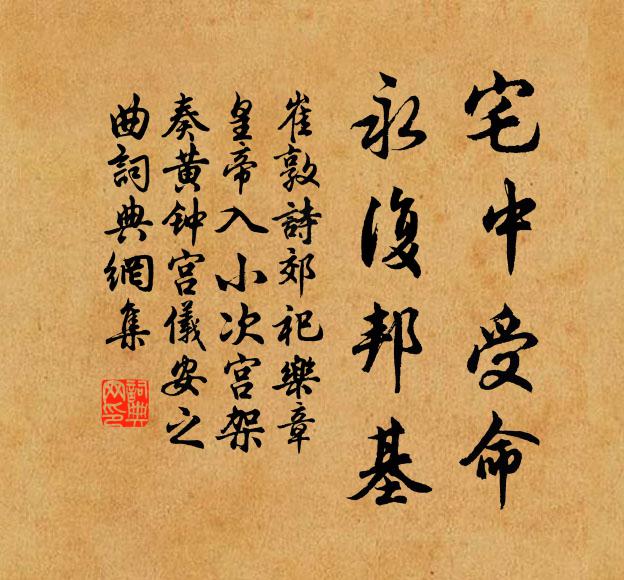 宅中受命
永復邦基
崔敦詩郊祀樂章
皇帝入小次宮架
奏黃钟宮儀安之
曲詞典網集
詞典
网印